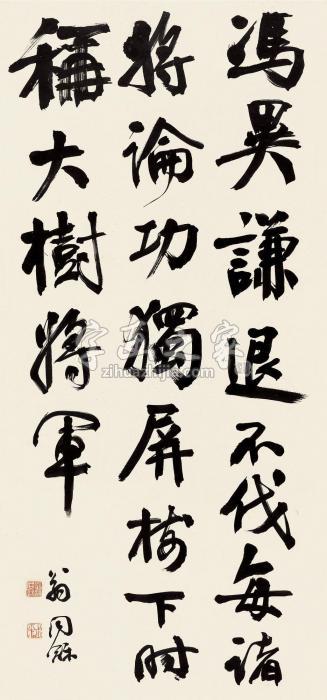 馮異謙退不伐每諸
將論功獨屏樹下時
稱大樹將軍
翁同龢
字画之家
zihuazhijia.com